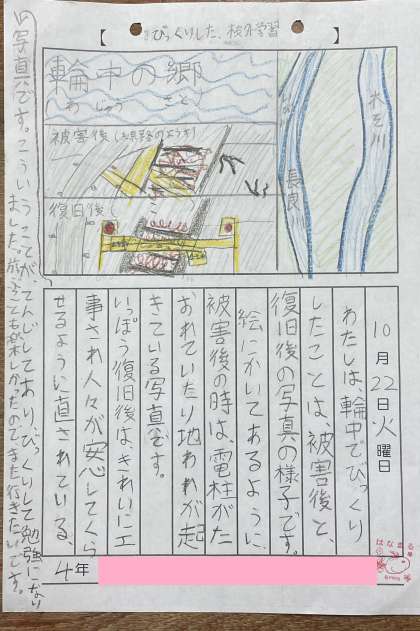 【びっくりした、校外学習】
輪中の郷
わ じゅう さと
被害後(線路のようす)
復旧後
木曽川
長良川
10月22日火曜日
わたしは、輪中でびっくり
したことは、被害後と、
復旧後の写真の様子です。
絵にかいてあるように、
被害後の時は、電柱がた
おれていたり地われが起
きている写真です。
いっぽう復旧後は、きれいに工
事され人々が安心してくら
せるように直されている、
の写真です。こういうことが、てんじしてあり、びっくりして勉強にない
ました。旅よこても楽しかったのでまた行きたいです。
4年
はなまる